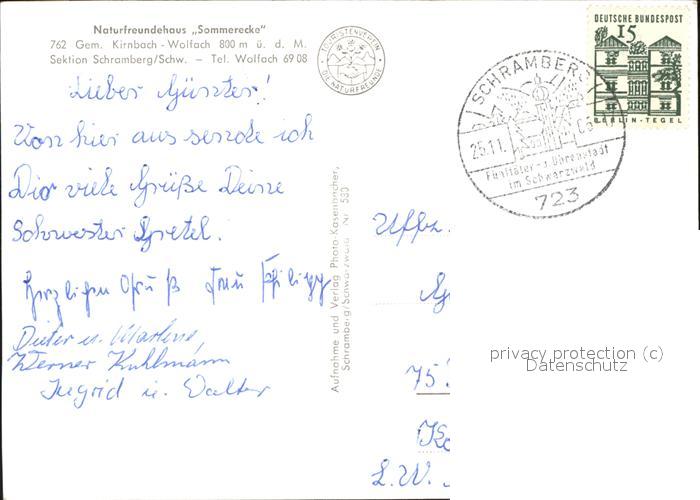 Naturfreundehaus „Sommerecke"
762 Gem. Kirnbach-Wolfach 800 m ü. d. M.
Sektion Schramberg/Schw. – Tel. Wolfach 6908
TOURISTENVEREIN
DIE NATURFREUNDE
DEUTSCHE BUNDESPOST
15
BERLIN-TEGEL
SCHRAMBERG
25.11.
Fünftäler- u. Uhrenstadt
im Schwarzwald
723
Lieber Günter!
Von hier aus sende ich
Dir viele Grüße Deine
Schwester Gretel.
Herzlichen Gruß
Dieter u. Marlene,
Werner Kuhlmann
Ingrid u. Walter
Aufnahme und Verlag Photo-Kasenbacher,
Schramberg/Schwarzwald Nr. 530
Uffz.
75
L.W.
privacy protection (c)
Datenschutz